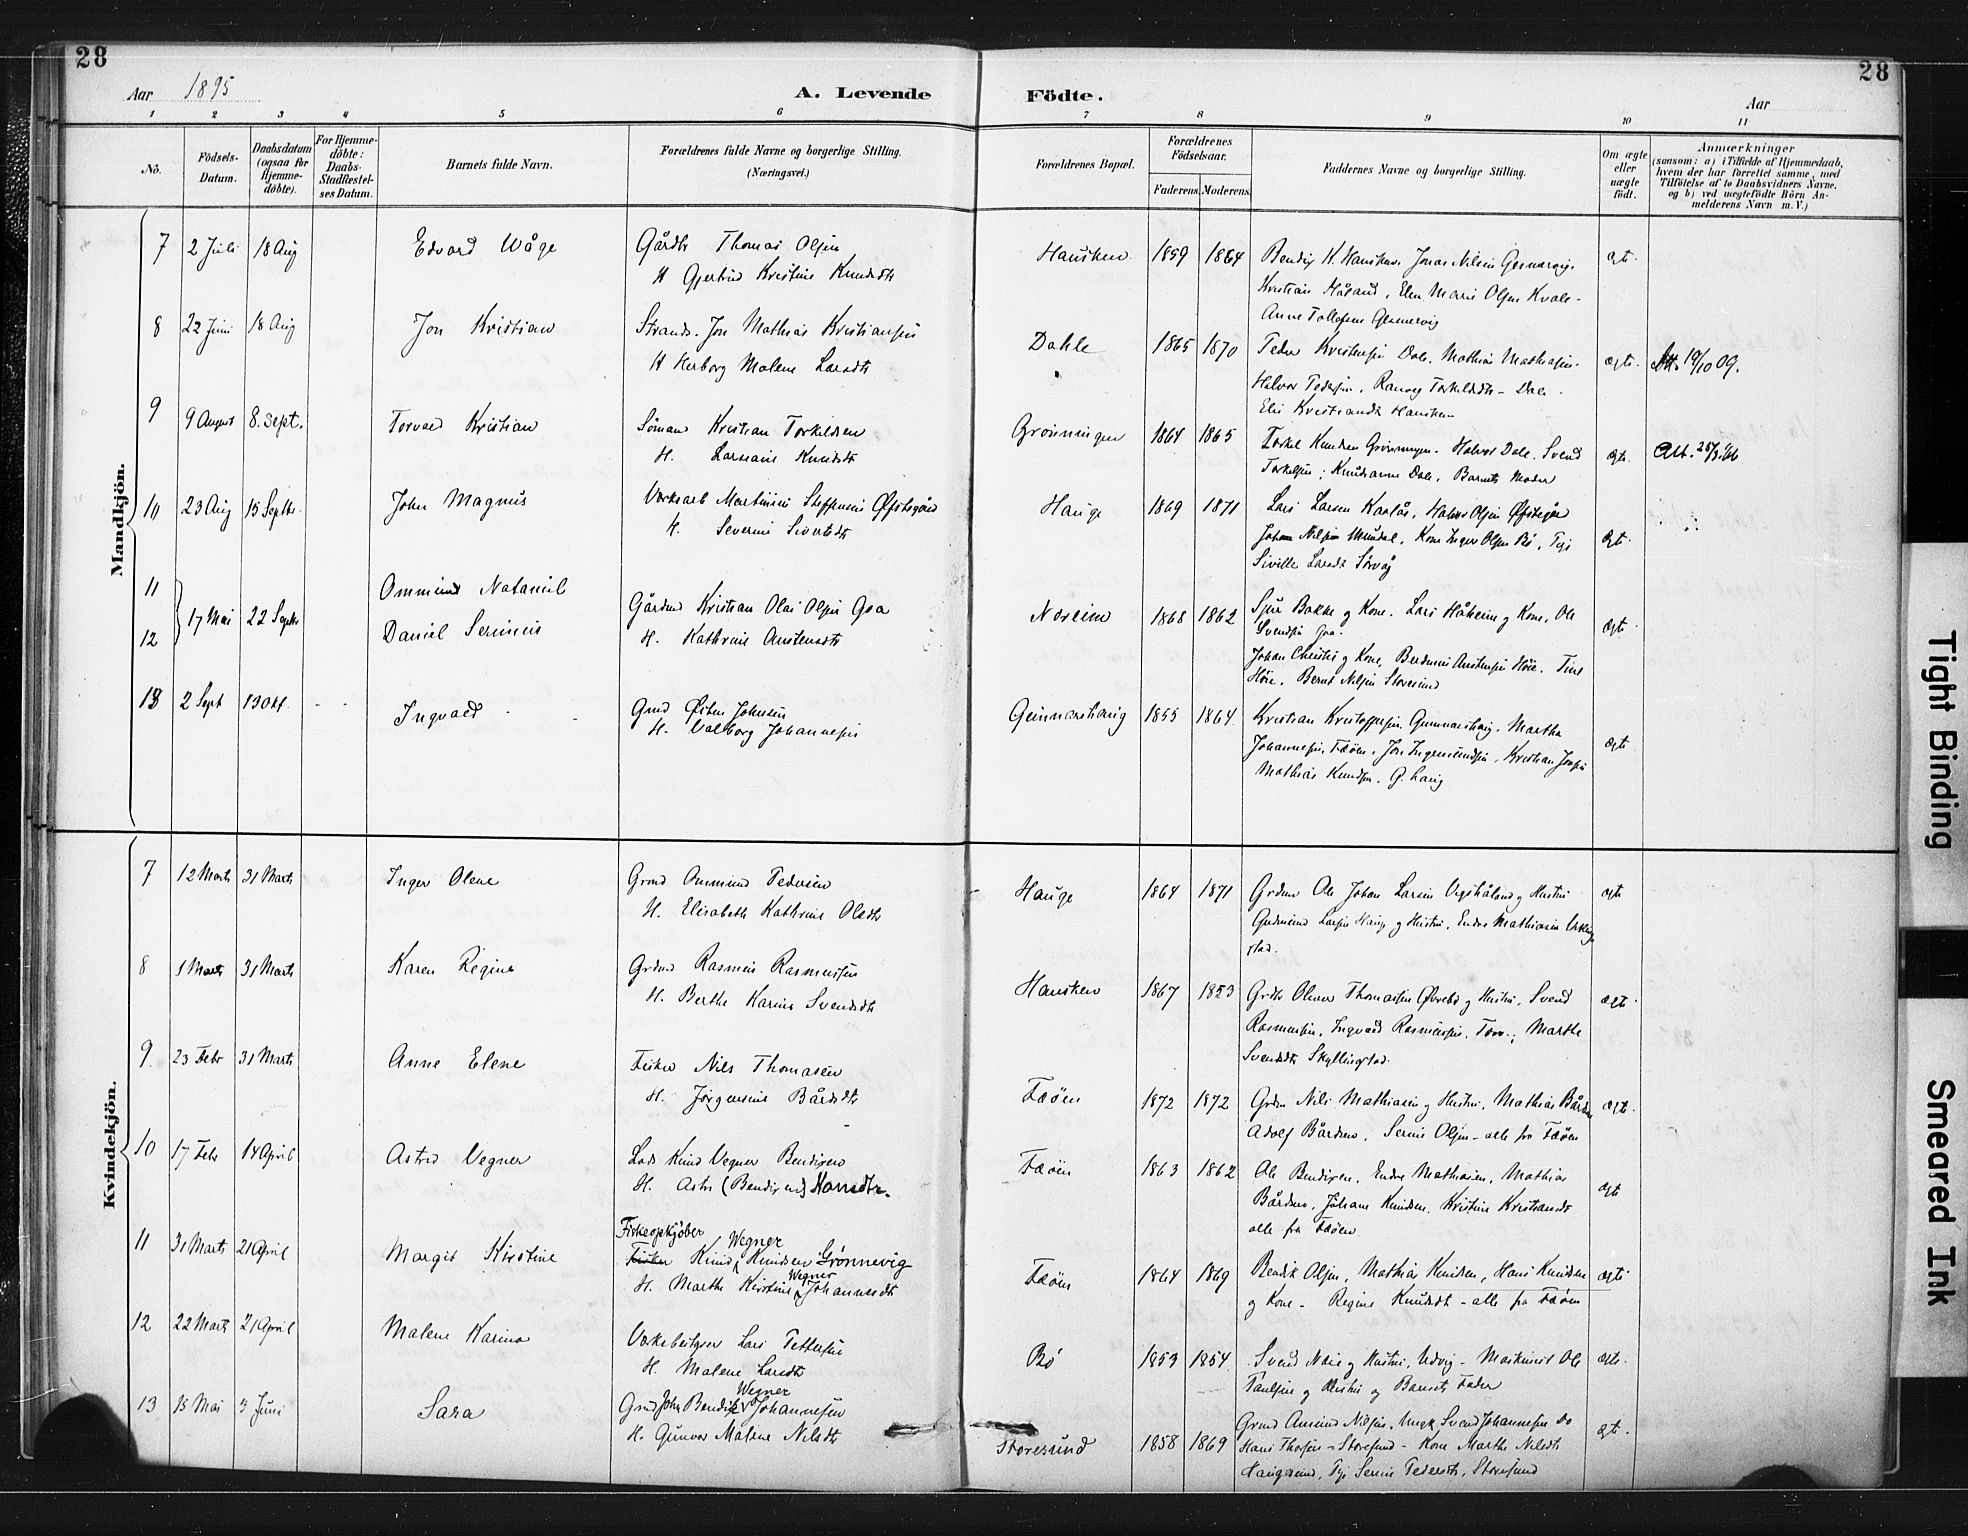 28
28
Aar 1895
A. Levende Födte.
Aar
1 2 3 4 5 6 7 8 9 10 11
No.
Födsels-Datum.
Daabsdatum (ogsaa for Hjemme-döbte).
For Hjemme-döbte: Daabs-Stadfæstel-ses Datum.
Barnets fulde Navn.
Forældrenes fulde Navne og borgerlige Stilling. (Næringsvei.)
Forældrenes Bopæl.
Forældrenes Födselsaar.
Faderens. Moderens.
Faddernes Navne og borgerlige Stilling.
Om ægte eller uægte født.
Anmærkninger
(saasom: a) i Tilfælde af Hjemmedaab,
hvem der har forrettet samme, med
Tilföielse af to Daabsvidners Navne,
og b) ved uægtefödte Börn An-
melderens Navn m. V.)
Mandkjön.
7 2 Juli 18 Aug Edvard Wåge
Gårdbr Thomas Olsen
H Gjertrud Kristine Knudsdtr
Hausken 1859 1864
Bendix K. Hausken. Jonas Nilsen
Kristian Håland, Elen Marie Olsen Kvale-
Anne Tollefsen
ægte.
8 22 Juni 18 Aug Jon Kristian
Jon Mathias Kristiansen
H Herborg Malene Larsdtr
Dahle 1865 1870
Peder Kristensen Dale. Mathias Mathiasen.
Halvor Pedersen. Ranveg Torkildsdtr - Dale.
Kristiansdtr Hausken
ægte. Att. 19/10 09.
9 9 August 8. Sept. Torvald Kristian
Sömand Kristian Torkildsen
H. Knudsdtr
Grönningen 1864 1865
Torkel Knudsen Grönningen. Halvor Dale. Svend
Torkelsen; Knudianne Dale, Barnets Moder
ægte. Att.
10 23 Aug 15 Septbr. John Magnus
Steffensen Øfstegård
H. Severine Sivertsdtr
Hauge 1869 1871
Lars Larsen Kaalås, Halvor Olsen Øfstegård
Johan Nilsen Mundal, Kone Inger Olsen Bö, Pige
Siville Larsdtr Sörvåg
ægte.
11
12 17 Mai 22 Septbr
Ommund Nataniel
Daniel Serinius
Gårdmd Kristian Olai Olsen Goa
H. Kathrine Austensdtr
Norheim 1868 1862
Sjur Bakke og Kone. Lars Håheim og Kone, Ole
Svendsen Goa.
Johan Christie og Kone, Berdines Austensen Höie. Tine
Höie. Bernt Nilsen Storesund
ægte.
13 2 Sept 13 Okt. - - Ingvald
Grmd Østen Johnsen
H. Valborg Johannesen
Gunnarshaug 1855 1864.
Kristian Kristoffersen, Gunnarshaug. Martha
Johannesen, Fæöen. Jon Ingemundsen. Kristian Jonsen
Mathias Knudsen. G. haug
ægte.
Kvindekjön.
7 12 Marts 31 Marts Inger Olene
Grmd Ommund Pedersen
H. Elisabeth Kathrine Olsdtr
Hauge 1864 1871
Grdmd Ole Johan Larsen og Hustru
Gudmund Larsen Hauge og Hustru. Endre Mathiasen
stad.
ægte
8 1 Marts 31 Marts Karen Regine
Grdmd Rasmus Rasmussen
H. Berthe Karine Svendsdtr
Hausken 1867 1853
Grdbr Oliver Thomassen Øvrebö og Hustru. Svend
Rasmussen. Ingvald Rasmussen. Marthe
Svendsdtr Skyllingstad.
ægte.
9. 23 Febr 31 Marts Anne Elene
Fisker Nils Thomasen
H. Jörgensine Bårdsdtr
Fæöen 1872 1872
Grdm Nils Mathiasen og Hustru. Mathias Bårdsen
Adolf Bårdsen, Serine Olsen - alle fra Fæöen
ægte.
10 17 Febr 14 April Astrid Vegner
Lods Knud Vegner Bendixen
H. Astri (Bendixen) Hansdtr.
Fæöen 1863 1862
Ole Bendixen, Endre Mathiasen, Mathias
Bårdsen. Johanne Knudsen. Kristine Kristiansdtr
alle fra Fæöen
ægte
11 31 Marts 21 April Margit Kirstine
Fiskeopkjöber
Wegner
Fisker Knud Knudsen Grönnevig
Wegner
H. Marthe Kirstine Johannesdtr
Fæöen 1864 1869
Bendik Olsen, Mathias Knudsen, Hans Knudsen
og Kone. Regine Knudsdtr - alle fra Fæöen
ægte
12 22 Marts 21 April Malene Karine
Lars Pettersen
H. Malene Larsdtr
Bö 1853 1854
Svend og Hustru, Udvig - Maskinist Ole
Paulsen og Hustru og Barnets Fader
ægte.
13 15 Mai 3 Juni Sara
Wegner
Grmd John Bendix Johannesen
H. Gunvor Malene Nilsdtr
Storesund 1858 1869
Grmd Amund Nilsen. Ungk. Svend Johannesen Do
Hans Thorsen - Storesund - Kone Marthe Nilsdtr
Haugesund. Pige Serine Pedersdtr. Storesund
ægte.
Tight Binding
Smeared Ink